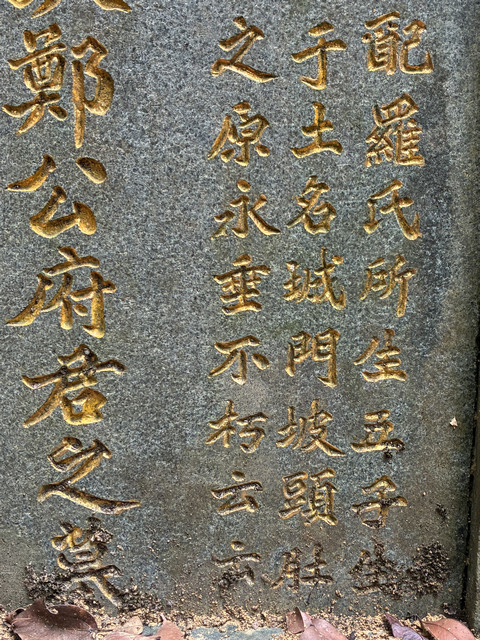 配羅氏所生五子生
于土名城門坡頭肚
之原永垂不朽云云
鄭公府君之墓